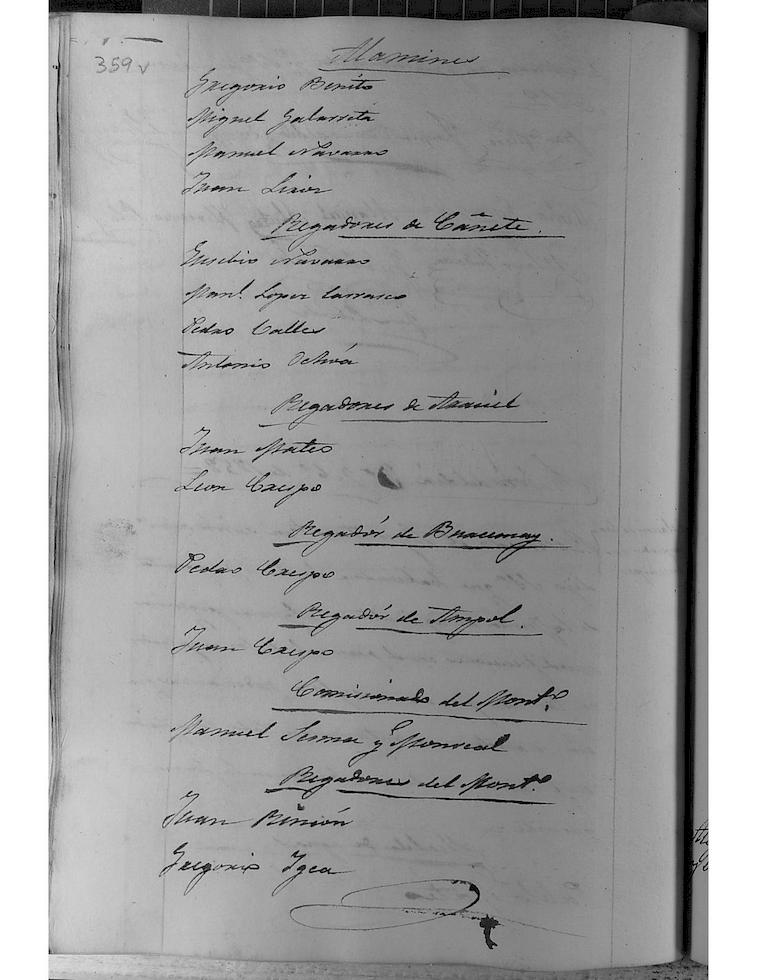 359v
Alamines
Gregorio Benito
Miguel Galarreta
Manuel Navarro
Juan
Regadores de Cañete.
Eusebio Navarro
Manl. Lopez Carrasco
Pedro Calles
Antonio Ochoa
Regadores de Araciel
Juan Mateo
Leon Crespo
Regadór de
Pedro Crespo
Regadór de Ampol.
Juan Crespo
Comisionado del Monte.
Manuel Senma y Monreal
Regadores del Monte.
Juan Rincón
Gregorio Igea